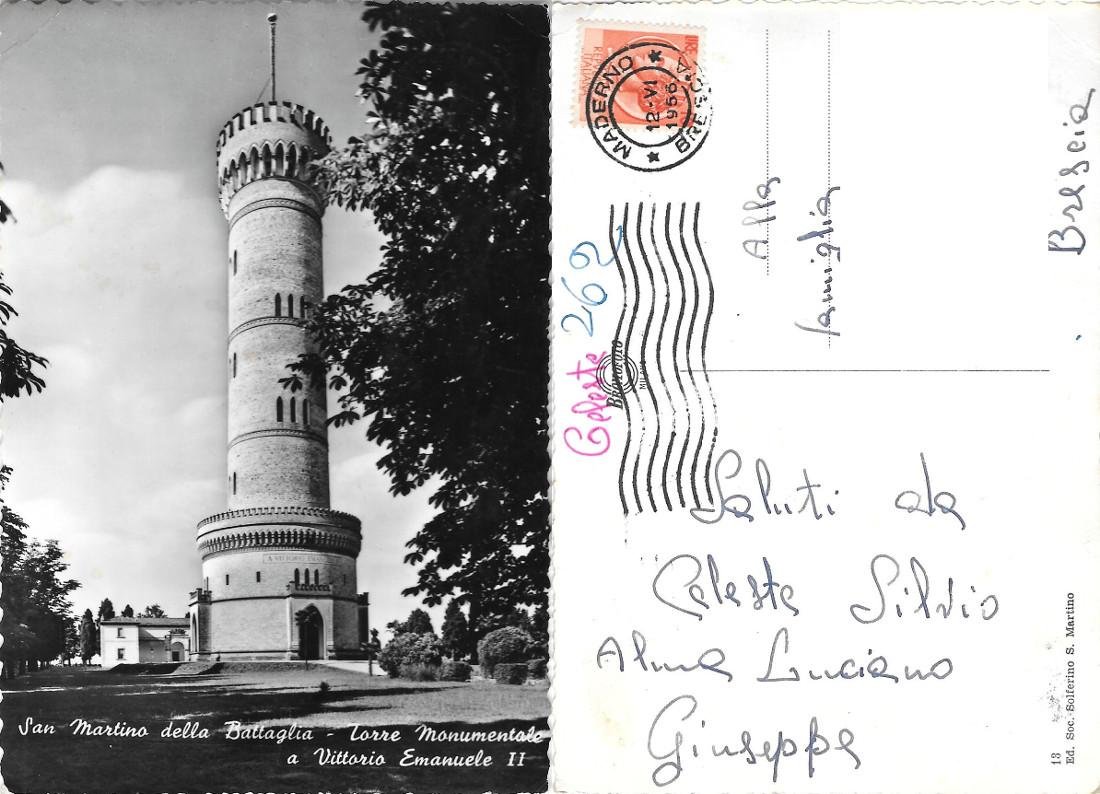 A VITTORIO
San Martino della Battaglia - Torre Monumentale
a Vittorio Emanuele II
LIRE
REPVBBLICA
ITALIANA
MADERNO
12-VI
1956
BRESCIA
262
Celeste
MILANO
Alla
famiglia
Brescia
Saluti da
Celeste Silvio
Alma Luciano
Giuseppe
13
Ed. Soc. Solferino S. Martino